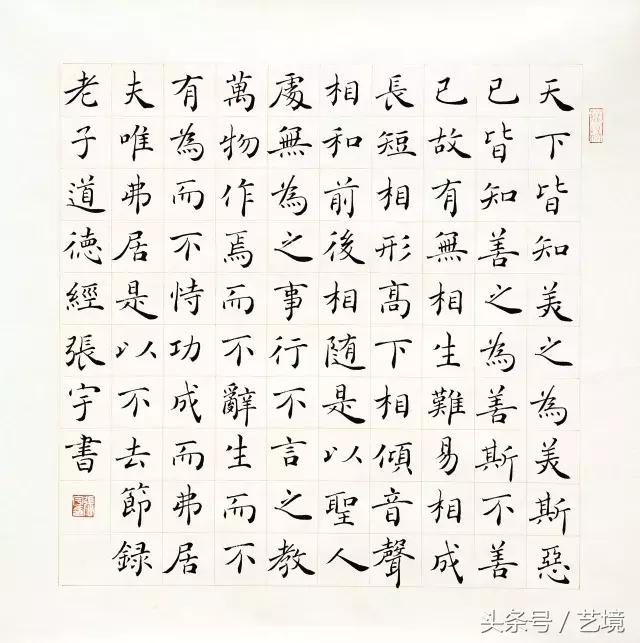 天下皆知美之為美斯惡
已皆知善之為善斯不善
已故有無相生難易相成
長短相形高下相傾音聲
相和前後相随是以聖人
處無為之事行不言之教
萬物作焉而不辭生而不
有為而不恃功成而弗居
夫唯弗居是以不去節録
老子道德經張宇書
头条号/艺境